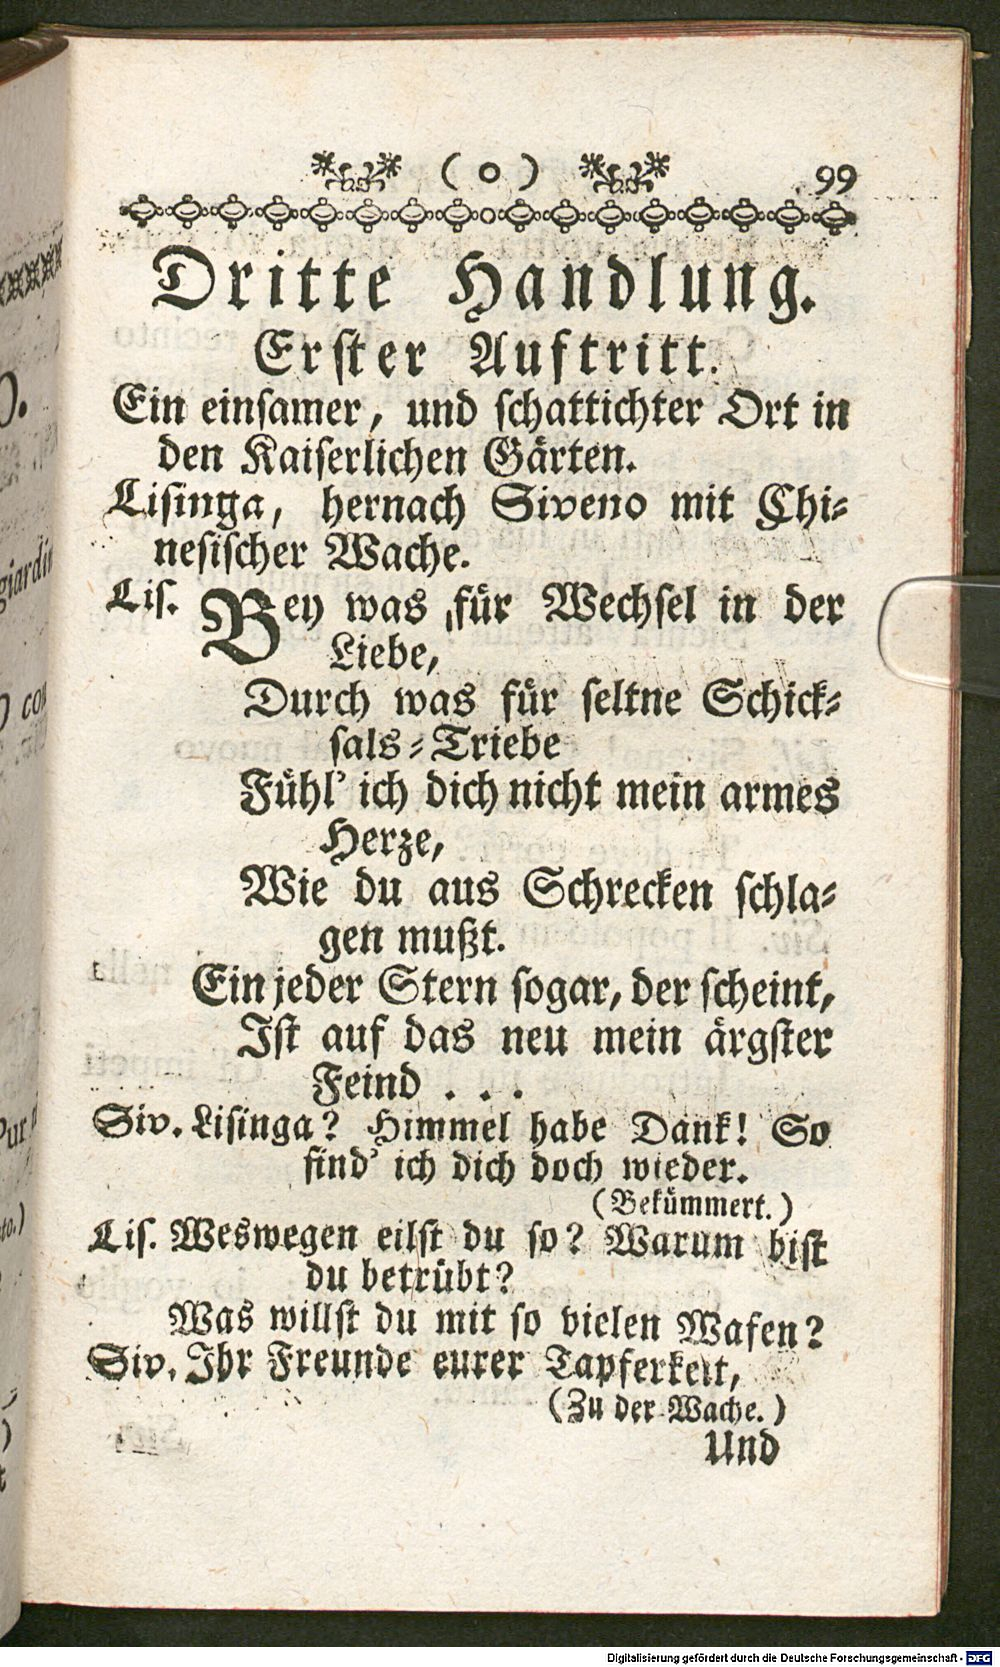 ( o ) 99
Dritte Handlung.
Erster Auftritt.
Ein einsamer, und schattichter Ort in
den Kaiserlichen Gärten.
Lisinga, hernach Siveno mit Chi-
nesischer Wache.
Lis. Bey was für Wechsel in der
Liebe,
Durch was für seltne Schick-
sals-Triebe
Fühl' ich dich nicht mein armes
Herze,
Wie du aus Schrecken schla-
gen mußt.
Ein jeder Stern sogar, der scheint,
Ist auf das neu mein ärgster
Feind . . .
Siv. Lisinga? Himmel habe Dank! So
find' ich dich doch wieder.
(Bekümmert.)
Lis. Weswegen eilst du so? Warum bist
du betrübt?
Was willst du mit so vielen Wafen?
Siv. Ihr Freunde eurer Tapferkeit,
(Zu der Wache.)
Und
giardin
Digitalisierung gefördert durch die Deutsche Forschungsgemeinschaft - DFG